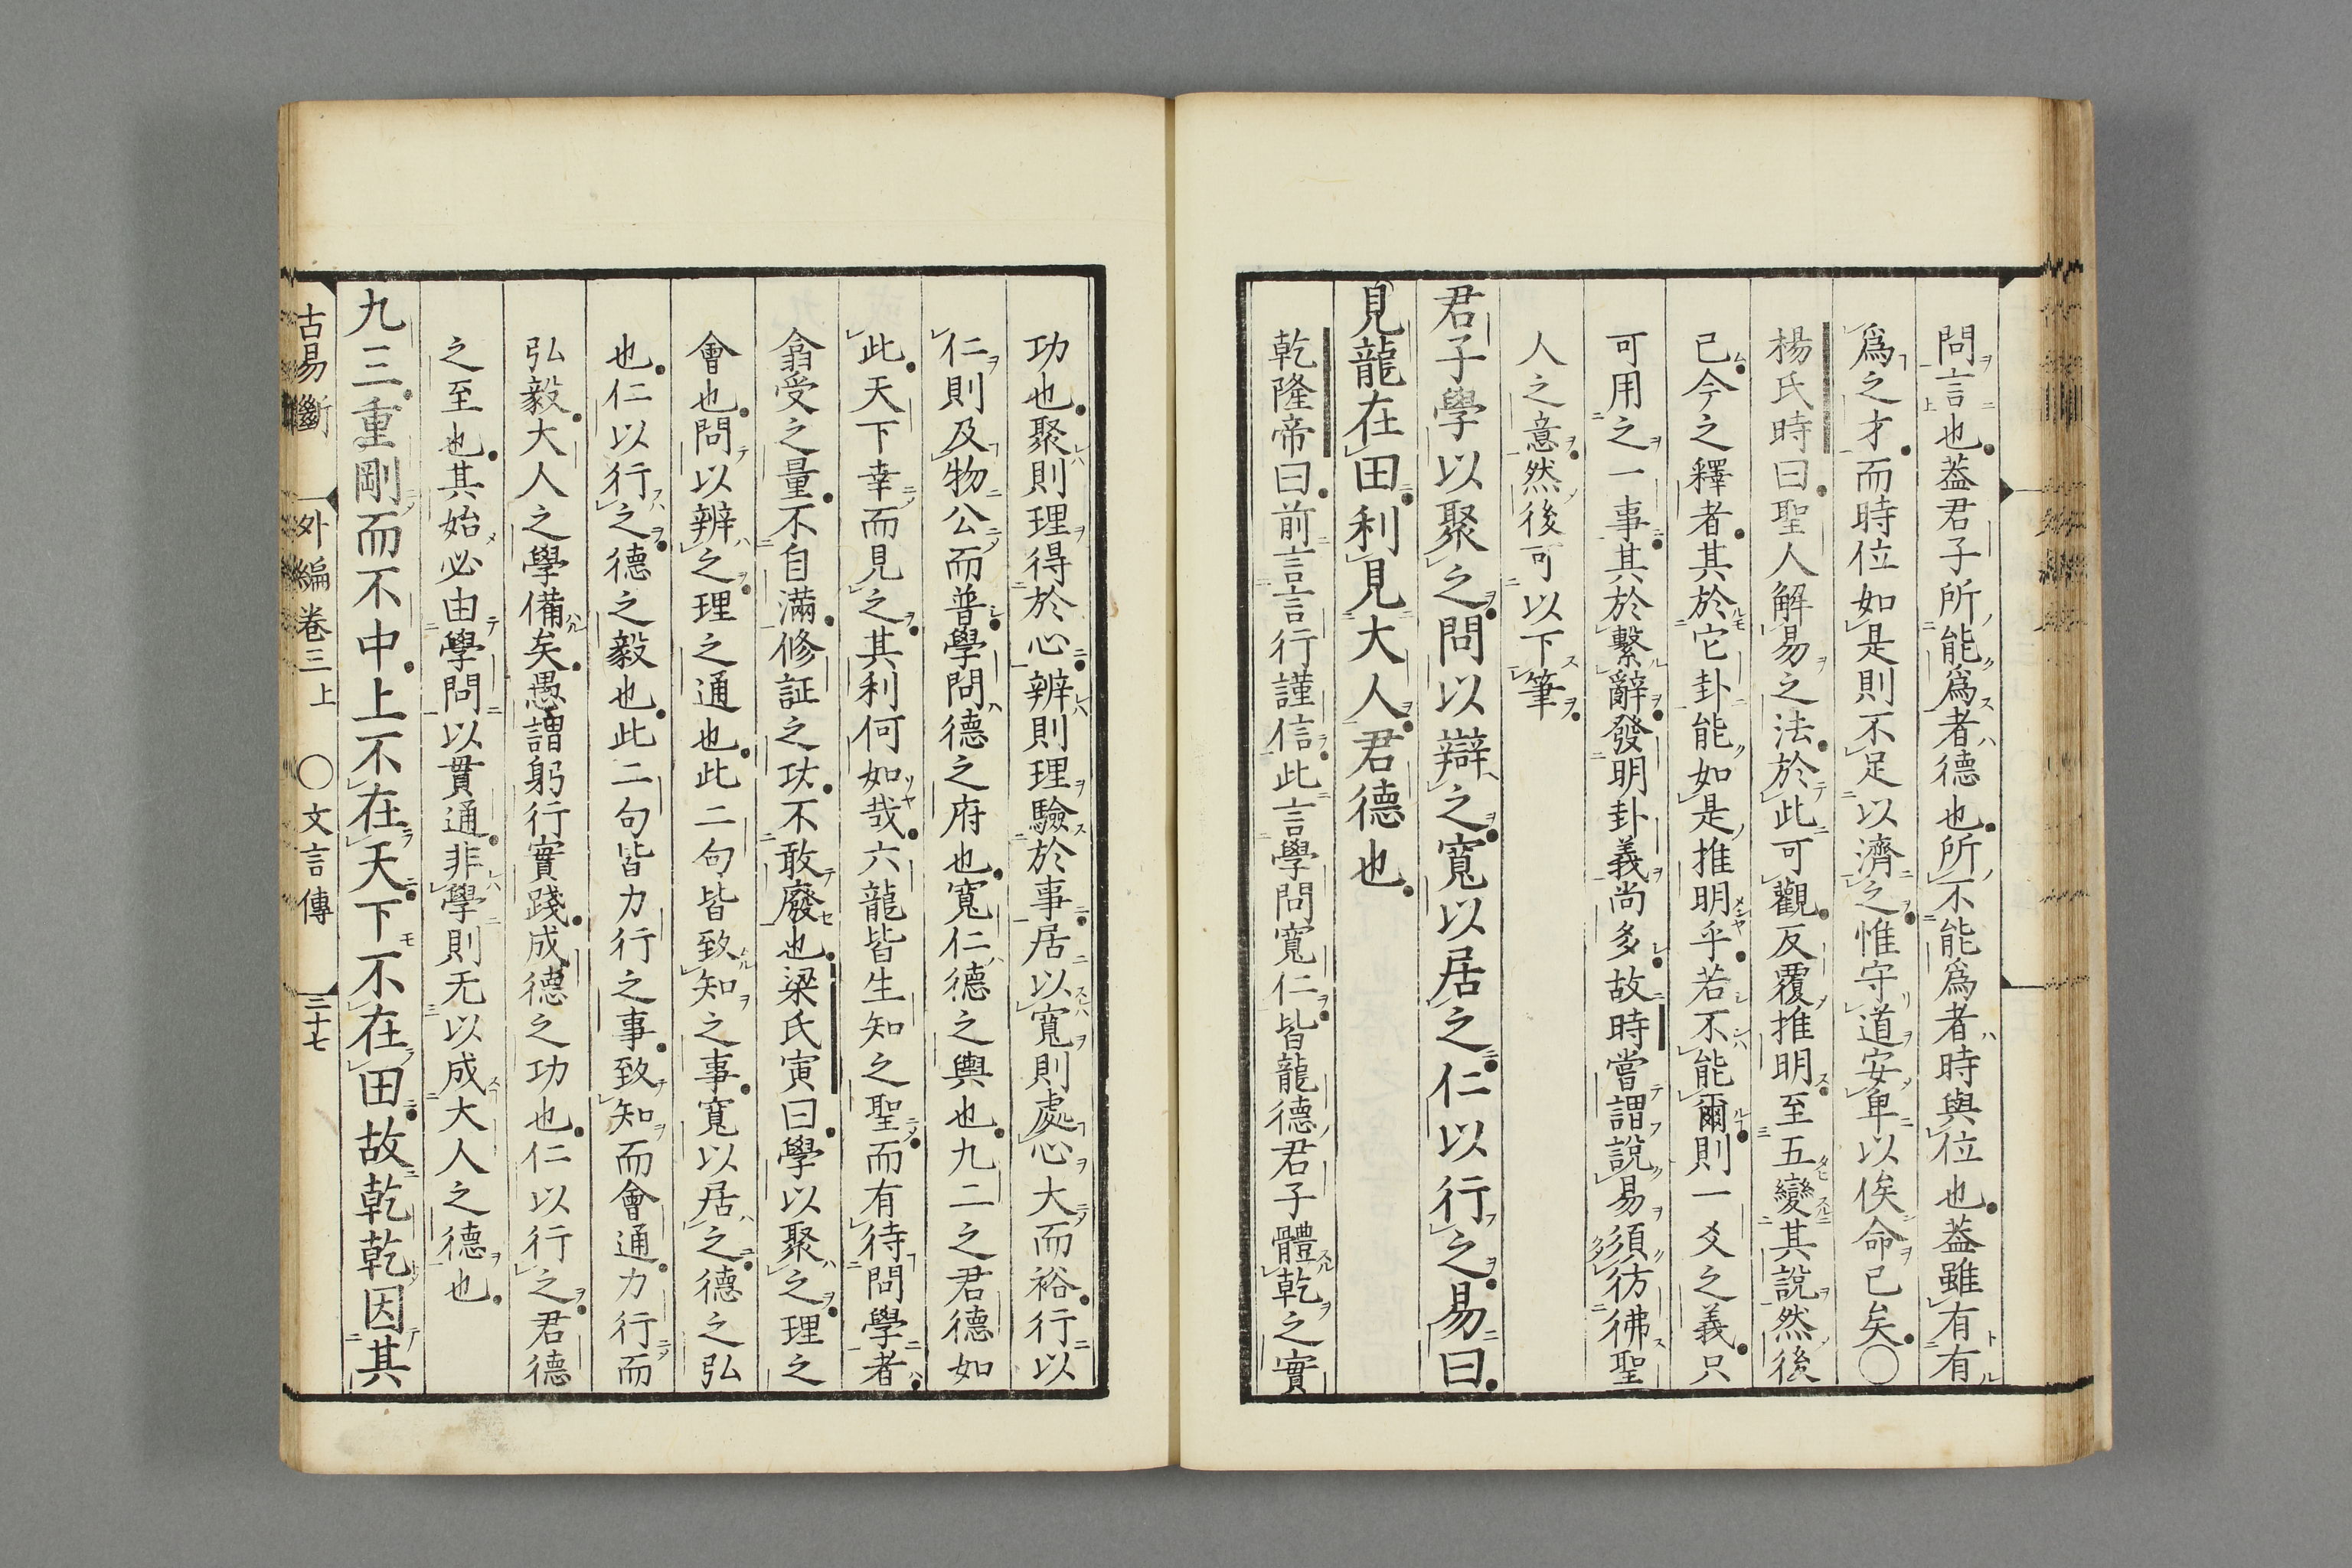 問言也蓋君子所能爲者德也所不能爲者時與位也蓋雖有有
爲之才而時位如是則不足以濟之惟守道安卑以俟命已矣○
楊氏時曰聖人解易之法於此可觀反覆推明至五變其說然後
已今之釋者其於它卦能如是推明乎若不能爾則一爻之義只
可用之一事其於繫辭發明卦義尚多故時嘗謂說易須彷彿聖
人之意然後可以下筆
君子學以聚之問以辯之寬以居之仁以行之易曰
見龍在田利見大人君德也
乾隆帝曰前言言行謹信此言學問寬仁皆龍德君子體乾之實
功也聚則理得於心辨則理驗於事居以寬則處心大而裕行以
仁則及物公而普學問德之府也寬仁德之輿也九二之君德如
此天下幸而見之其利何如哉六龍皆生知之聖而有待問學者
翕受之量不自滿修証之㓛不敢廢也梁氏寅曰學以聚之理之
會也問以辨之理之通也此二句皆致知之事寬以居之德之弘
也仁以行之德之毅也此二句皆力行之事致知而會通力行而
弘毅大人之學備矣愚謂躬行實踐成德之功也仁以行之君德
之至也其始必由學問以貫通非學則无以成大人之德也
九三重剛而不中上不在天下不在田故乾乾因其
古易斷　外編卷三上　○文言傳　三十七